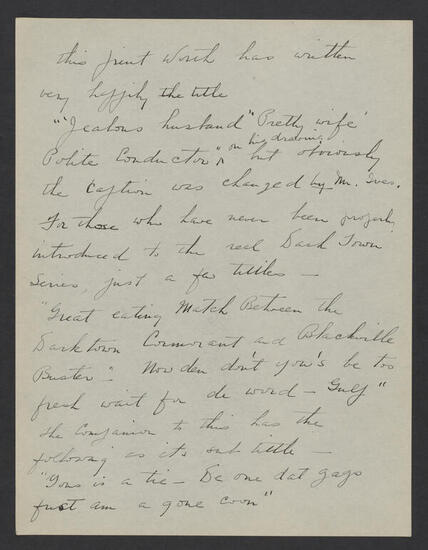 this print Worth has written
very happily the title
"'Jealous husband" Pretty wife'
on his drawing
Polite Conductor", but obviously
the Caption was changed by Mr. Ives.
For those who have never been properly
introduced to the real Dark Town
Series, just a few titles —
"Great eating Match Between the
Darktown Cormorant and Blackville
Buster". Now den don't you's be too
fresh wait for de word — Gulp"
The Companion to this has the
following as it's sub title —
"Yous is a tie — De one dat gags
fust am a gone coon"